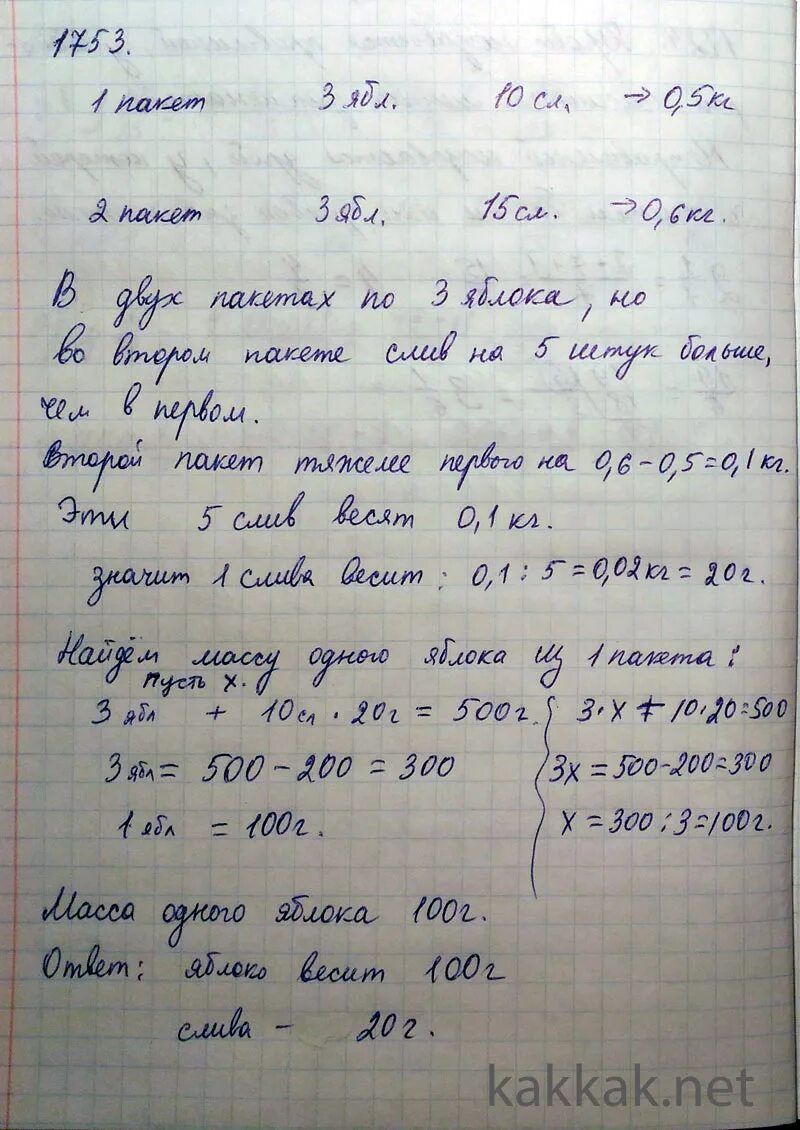 1753.
1 пакет 3 ябл. 10 сл. → 0,5 кг
2 пакет 3 ябл. 15 сл. → 0,6 кг.
В двух пакетах по 3 яблока, но
во втором пакете слив на 5 штук больше,
чем в первом.
Второй пакет тяжелее первого на 0,6 - 0,5 = 0,1 кг.
Эти 5 слив весят 0,1 кг.
значит 1 слива весит : 0,1 : 5 = 0,02 кг = 20 г.
Найдём массу одного яблока из 1 пакета :
пусть х.
3 ябл + 10 сл · 20 г = 500 г.
3 ябл = 500 - 200 = 300
1 ябл = 100 г.
3 · х + 10 · 20 = 500
3х = 500 - 200 = 300
х = 300 : 3 = 100 г.
Масса одного яблока 100 г.
Ответ : яблоко весит 100 г
слива - 20 г.
kakkak.net